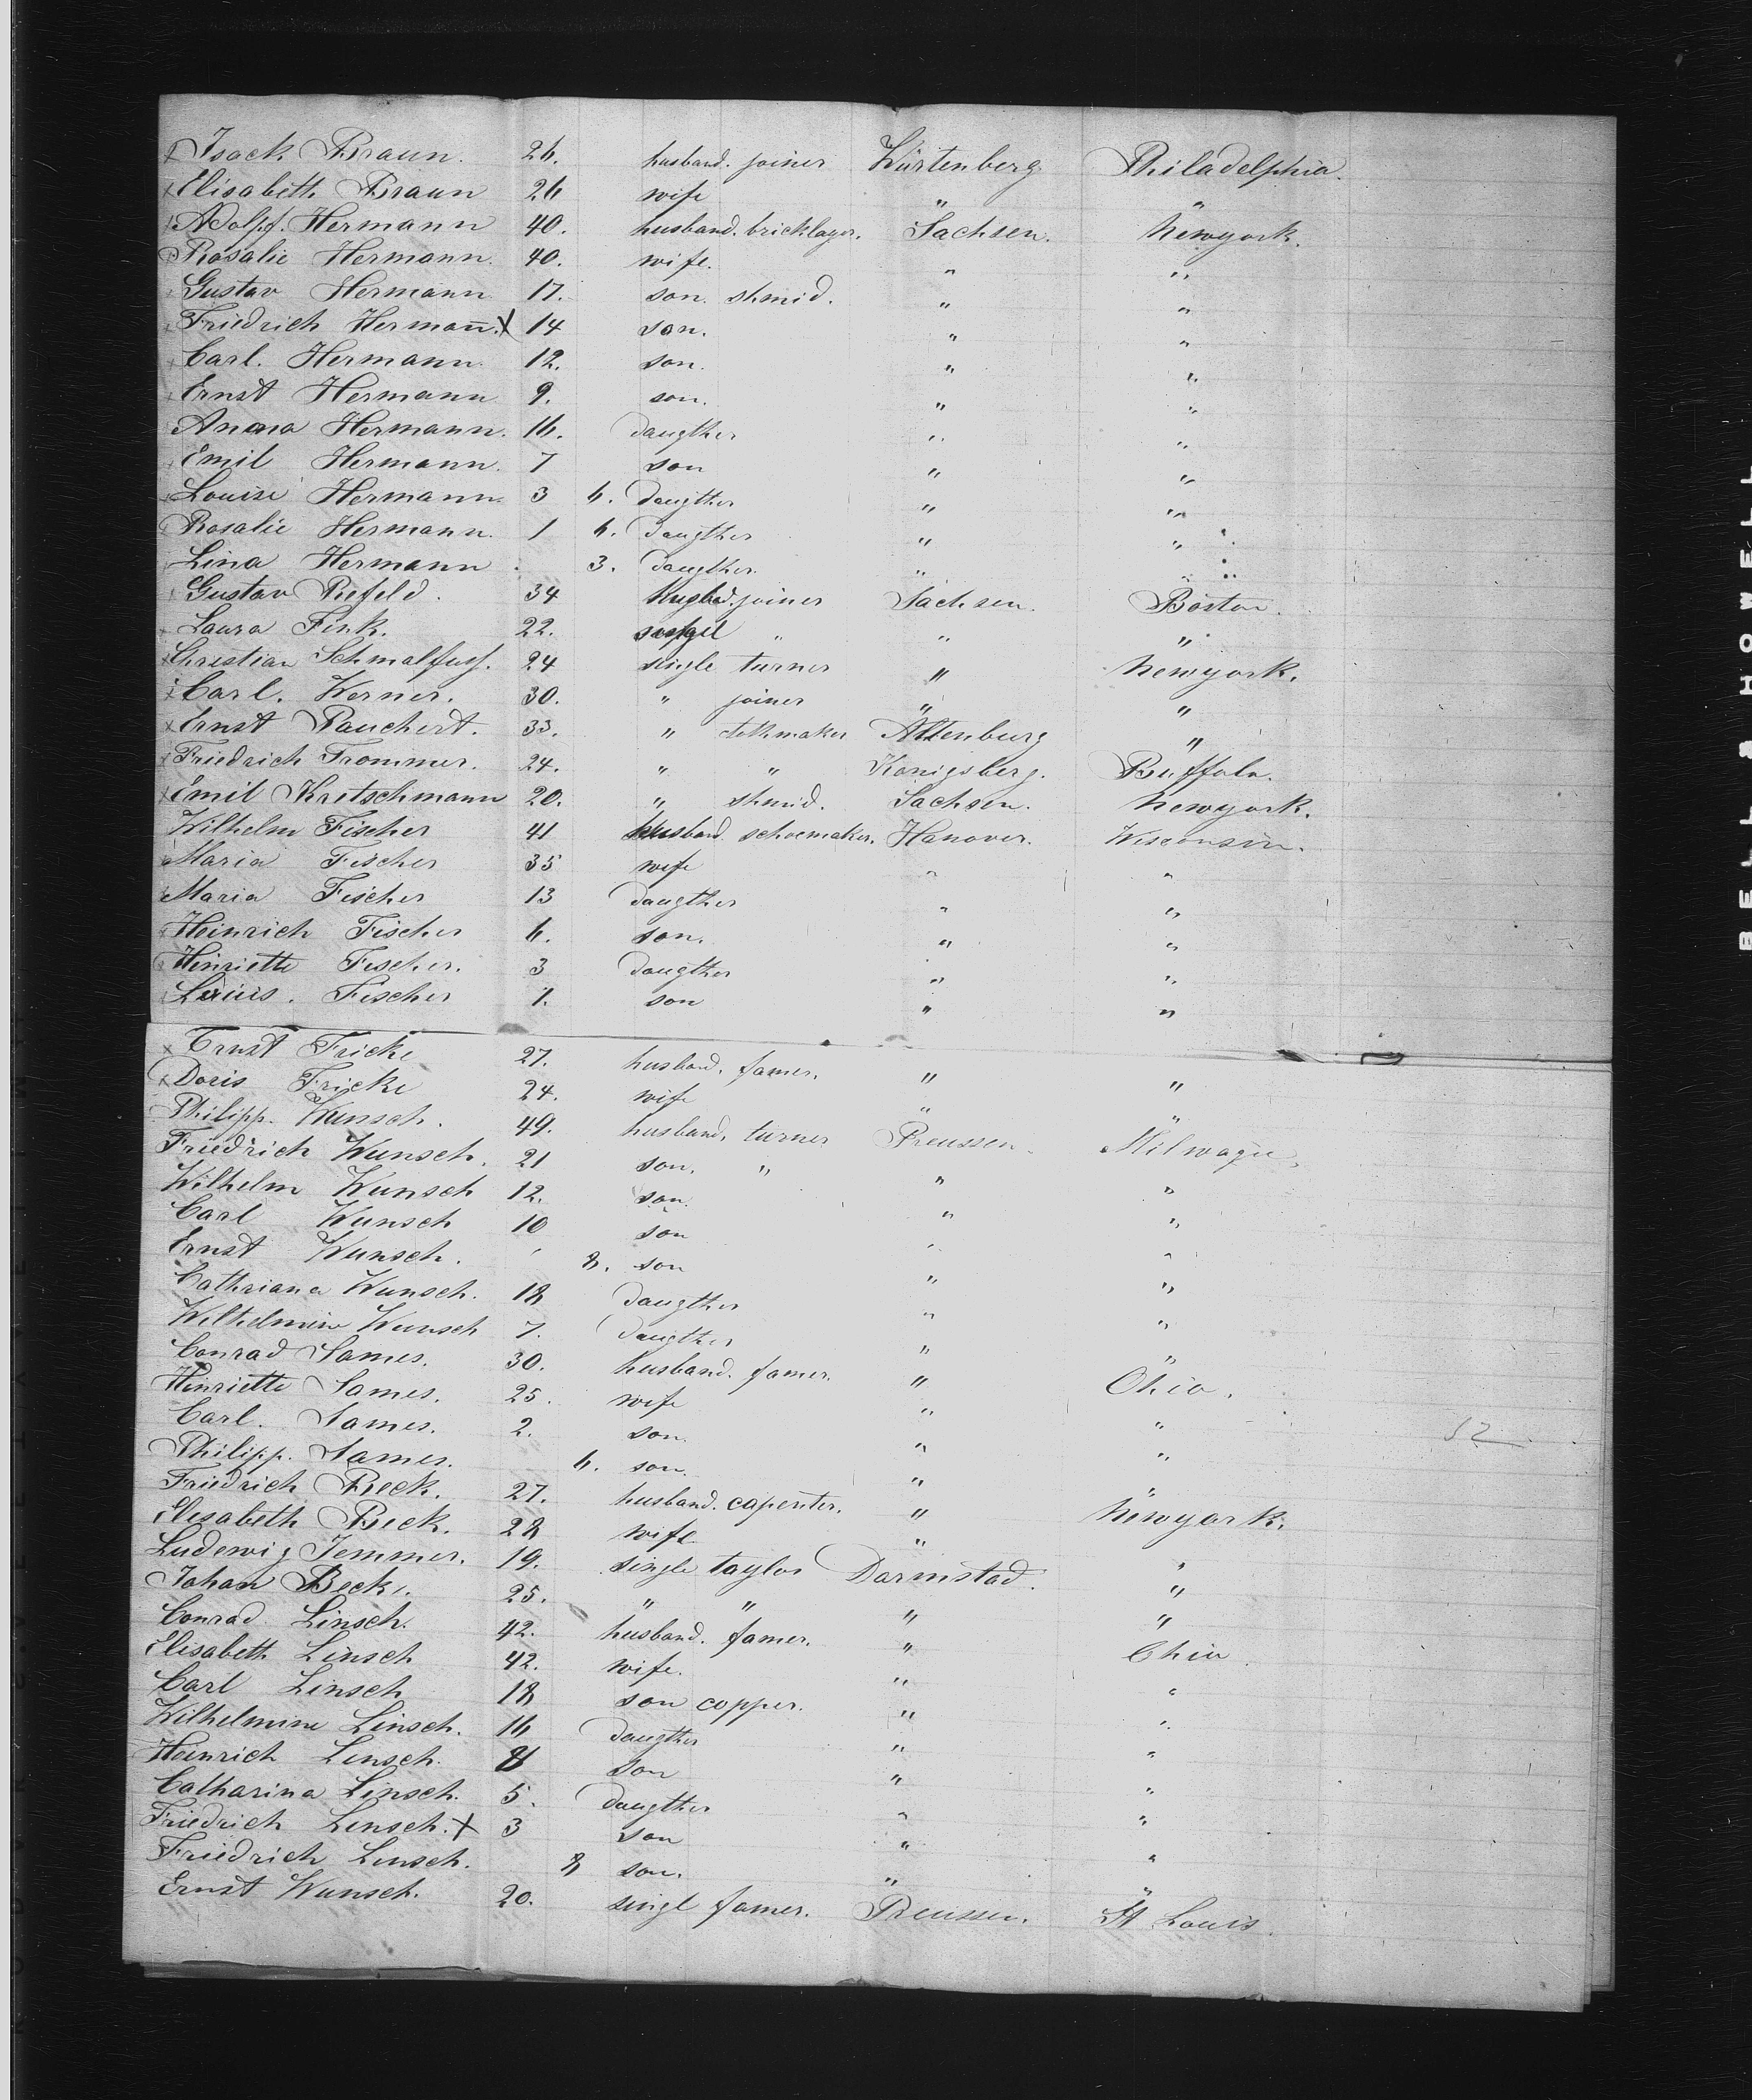 Isack Braun. 26. husband. joiner Würtenberg Philadelphia.
Elisabeth Braun 26 wife " "
Adolpf. Hermann 40. husband. bricklayer. Sachsen. Newyork.
Rosalie Hermann. 40. wife. " "
Gustav Hermann 17. son. shmid. " "
Friedrich Hermañ. X 14 son. " "
Carl. Hermann. 12. son. " "
Ernst Hermann 9. son. " "
Anna Hermann. 16. daugther " "
Emil Hermann. 7 son " "
Louise Hermann 3 6. daugther " "
Rosalie Hermann. 1 6. daugther " "
Lina Hermann 3. daugther. " "
Gustav Refeld. 34 joiner Sachsen. Boston.
Laura Fink. 22. " " "
Christian Schmalfuss. 24 single turner " Newyork.
Carl. Werner. 30. " joiner " "
Ernst Pauchert. 33. " Altenburg "
Friedrich Trommer. 24. " " Konigsberg. Buffalo.
Emil Kretschmann 20. " shmid. Sachsen. Newyork.
Wilhelm Fischer 41 husband. schoemaker. Hanover. Wisconsin.
Maria Fischer 35 wife " "
Maria Fischer 13 daugther " "
Heinrich Fischer 6. son. " "
Henriette Fischer. 3 daugther " "
Louis. Fischer 1. son " "
Ernst Fricke 27. husband. famer. " "
Doris Fricke 24. wife " "
Philipp. Wunsch. 49. husband. turner Preussen. Milwagie.
Friedrich Wunsch. 21 son. " " "
Wilhelm Wunsch 12. son. " "
Carl Wunsch 10 son " "
Ernst Wunsch. 8. son " "
Cathriana Wunsch. 18 daugther " "
Wilhelmine Wunsch 7. daugther " "
Conrad Sames. 30. husband. famer. " Ohio.
Henriette Sames. 25. wife " "
Carl. Sames. 2. son. " "
52
Philipp. Sames. 6. son. " "
Friedrich Beck. 27. husband. capenter. " Newyork.
Elesabeth Beck. 28 wife. " "
Ludewig Jemmer. 19. single taylor Darmstad. "
Johan Beck. 25. " " " "
Conrad. Linsch. 42. husband. famer. " Ohio.
Elisabeth Linsch 42. wife. " "
Carl Linsch 18 son copper. " "
Wilhelmine Linsch. 16 daugther " "
Heinrich Linsch. 8 son " "
Catharina Linsch. 5. daugther " "
Friedrich Linsch. X 3 son " "
Friedrich Linsch. 8 son. " "
Ernst Wunsch. 20. singl famer. Preussen. St Louis.
BELL & HOWELL